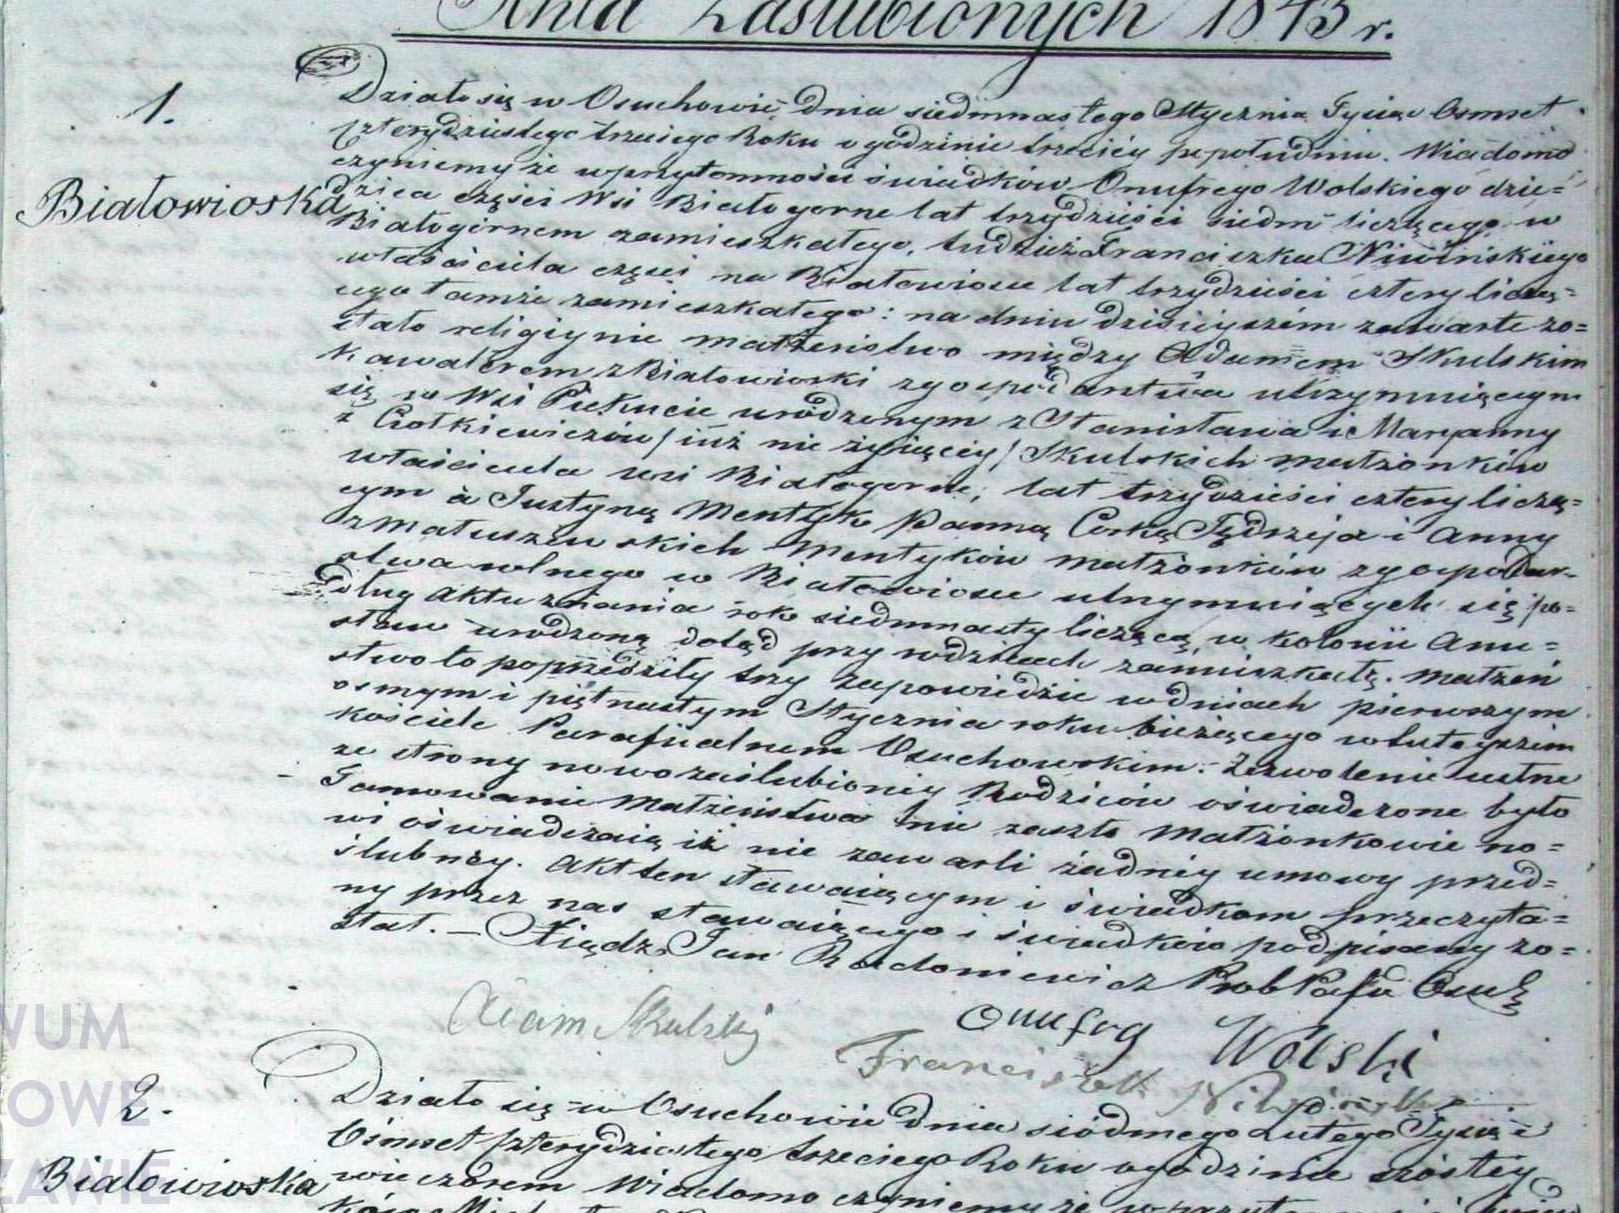 Akta Zaślubionych 1843 r.
1.
Białowioska
Działo się w Osuchowie dnia siedmnastego Stycznia Tysiąc Osmset
Czterydziestego trzeciego Roku o godzinie trzeciey popołudniu. Wiadomo
czyniemy że w przytomności świadków Onufrego Wolskiego dzie=
dzica części Wsi Białogorne lat trzydzieści siedm liczącego w
Białogórnem zamieszkałego, tudzież Franciszka Niwińskiego
właściciela części na Białowiosce lat trzydzieści cztery liczą=
cego tamże zamieszkałego: na dniu dzisieyszém zawarte zo=
stało religiynie małżeństwo między Adamem Skulskim
kawalerem z Białowioski z gospodarstwa utrzymuiącym
się w Wsi Piekucie urodzonym z Stanisława i Maryanny
z Ciołkiewiczów / iuż nie żyiącey / Skulskich małżonków
właściciela wsi Białogorne, lat trzydzieści cztery liczą=
cym a Justyną Mentzyk Panną Corką Jędrzeja i Anny
z Matuszewskich Mentyków małżonków z gospodar=
stwa rolnego w Białowiosce utrzymuiących się po=
dług aktu znania rok siedmnasty liczącą w kolonii Anu=
stow urodzoną dotąd przy rodzicach zamieszkałą. Małżeń
stwo to poprzedziły trzy zapowiedzie w dniach pierwszym
osmym i piętnastym Stycznia roku bieżącego w tuteyszém
kościele Parafialnem Osuchowskim. Zezwolenie ustne
ze strony nowozaślubioney Rodziców oświadczone było
Tamowanie Małżeństwa nie zaszło Małżonkowie no=
wi oświadczaią iż nie zawarli żadney umowy przed=
ślubney. Akt ten stawaiącym i świadkom przeczyta=
ny przez nas stawaiącego i świadków podpisany zo=
stał. — Xiądz Jan Radoniewicz Prob Pafii Osuch
Adam Skulski
Onufry Wolski
Franciszek Niwiński
2.
Białowioska
Działo się w Osuchowie dnia siódmego Lutego Tysiąc
Osmset Czterydziestego trzeciego Roku o godzinie szóstey
wieczorem Wiadomo czyniemy że w
WUM
OWE
ZAWIE